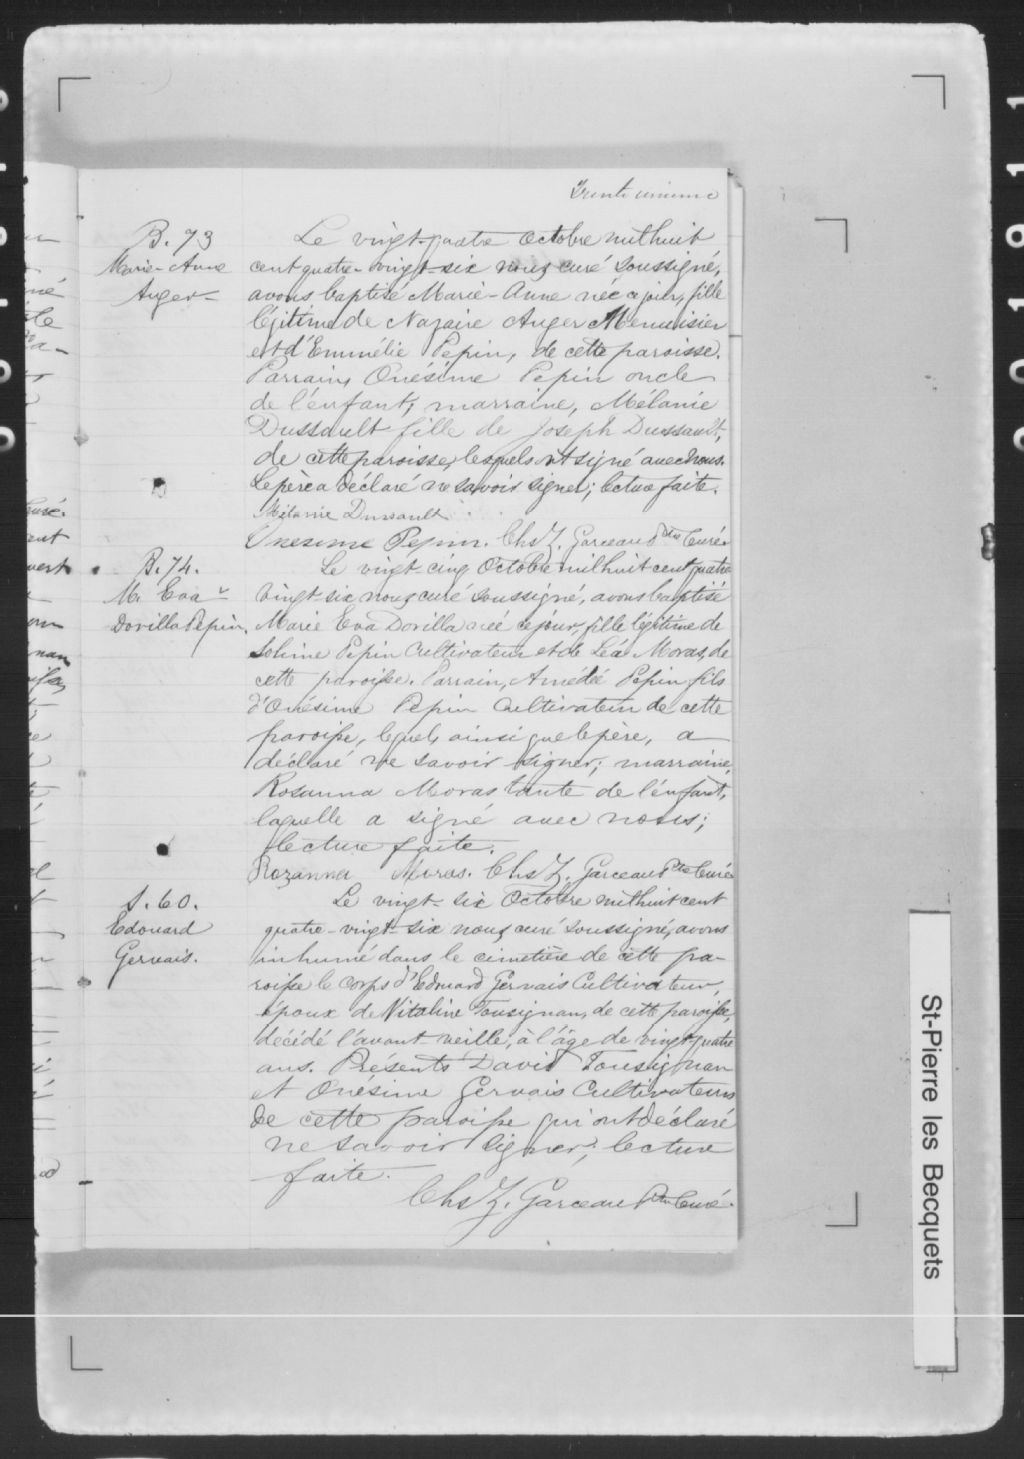 Trente unieme
B. 73
Marie-Anne
Auger
Le vingt-quatre Octobre mil huit
cent quatre-vingt-six nous curé soussigné,
avons baptisé Marie-Anne née ce jour, fille
légitime de Nazaire Auger Menuisier
et d'Emmélie Pepin, de cette paroisse.
Parrain, Onésime Pepin oncle
de l'enfant; marraine, Mélanie
Dussault fille de Joseph Dussault,
de cette paroisse, lesquels ont signé avec nous.
Le père a déclaré ne savoir signer; lecture faite.
Mélanie Dussault
Onesime Pepin. Chs Z. Garceau Ptre Curé
B. 74.
M. Eva
Dorilla Pepin.
Le vingt cinq Octobre mil huit cent quatre
vingt six nous curé soussigné, avons baptisé
Marie Eva Dorilla née ce jour, fille légitime de
Solime Pepin Cultivateur et de Léa Moras, de
cette paroisse. Parrain, Amédée Pepin fils
d'Onésime Pepin Cultivateur de cette
paroisse, lequel, ainsi que le père, a
déclaré ne savoir signer; marraine,
Rosanna Moras tante de l'enfant,
laquelle a signé avec nous;
lecture faite.
Rozanna Moras. Chs Z. Garceau Ptre Curé
S. 60.
Edouard
Gervais.
Le vingt-six Octobre mil huit cent
quatre-vingt-six nous curé soussigné, avons
inhumé dans le cimetière de cette pa-
roisse le corps d'Edouard Gervais Cultivateur,
époux de Vitaline Tousignan, de cette paroisse,
décédé l'avant veille, à l'âge de vingt-quatre
ans. Présents David Tousignan
et Onésime Gervais Cultivateurs
de cette paroisse qui ont déclaré
ne savoir signer; lecture
faite.
Chs Z. Garceau Ptre Curé.
St-Pierre les Becquets